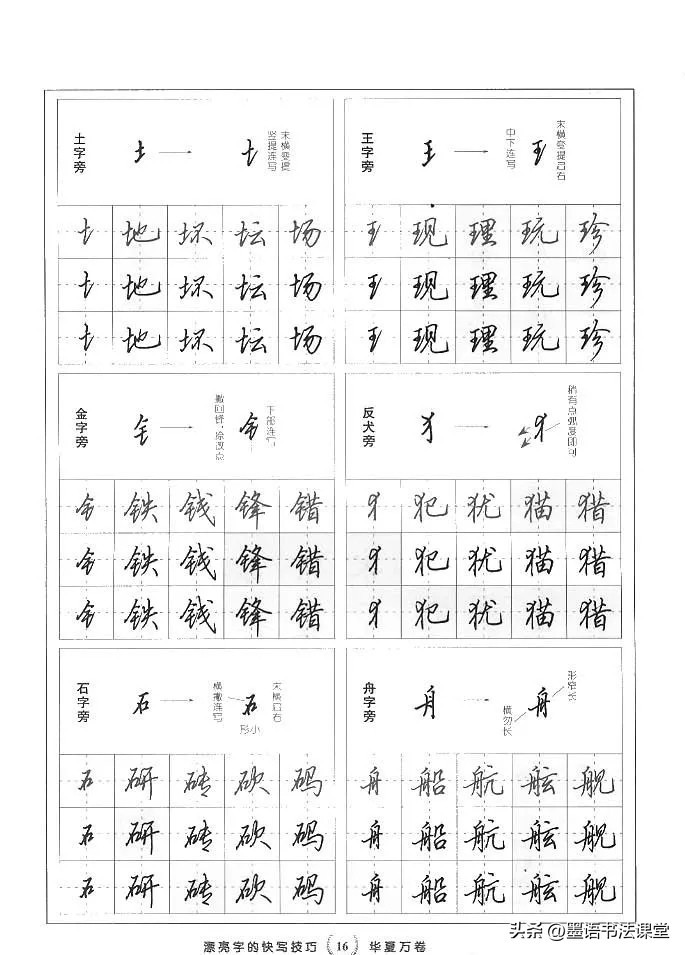 土字旁
土
土
末横变提
竖提连写
土 地 坏 坛 场
土 地 坏 坛 场
土 地 坏 坛 场
王字旁
王
中下连写
王
末横变提启右
王 现 理 玩 珍
王 现 理 玩 珍
王 现 理 玩 珍
金字旁
钅
撇回锋，捺改点
钅
下部连写
钅 铁 钱 锋 错
钅 铁 钱 锋 错
钅 铁 钱 锋 错
反犬旁
犭
犭
稍有点弧度即可
犭 犯 犹 猫 猎
犭 犯 犹 猫 猎
犭 犯 犹 猫 猎
石字旁
石
横撇连写
石
末横启右
形小
石 研 砖 砍 码
石 研 砖 砍 码
石 研 砖 砍 码
舟字旁
舟
横勿长
舟
形窄长
舟 船 航 舷 舰
舟 船 航 舷 舰
舟 船 航 舷 舰
漂亮字的快写技巧 16 华夏万卷
头条 @墨语书法课堂